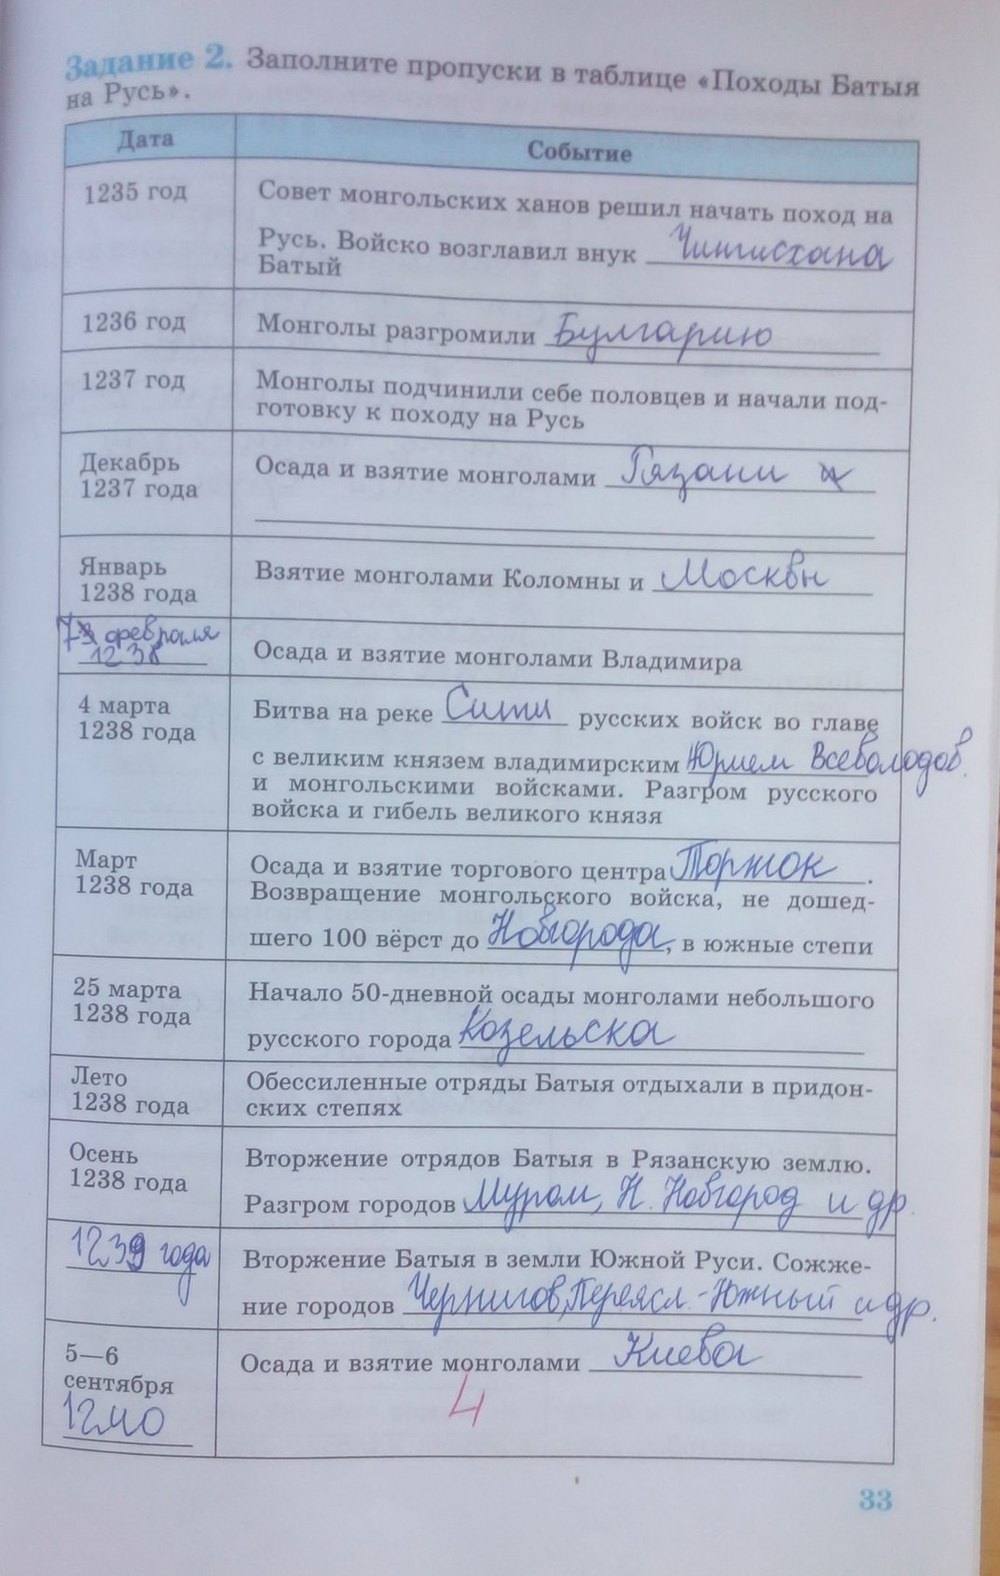 Задание 2. Заполните пропуски в таблице «Походы Батыя
на Русь».
Дата
Событие
1235 год
Совет монгольских ханов решил начать поход на
Русь. Войско возглавил внук Чингисхана
Батый
1236 год
Монголы разгромили Булгарию
1237 год
Монголы подчинили себе половцев и начали под-
готовку к походу на Русь
Декабрь
1237 года
Осада и взятие монголами Рязани
Январь
1238 года
Взятие монголами Коломны и Москвы
7 февраля
1238
Осада и взятие монголами Владимира
4 марта
1238 года
Битва на реке Сити русских войск во главе
с великим князем владимирским Юрием Всеволодов.
и монгольскими войсками. Разгром русского
войска и гибель великого князя
Март
1238 года
Осада и взятие торгового центра Торжок.
Возвращение монгольского войска, не дошед-
шего 100 вёрст до Новгорода, в южные степи
25 марта
1238 года
Начало 50-дневной осады монголами небольшого
русского города Козельска
Лето
1238 года
Обессиленные отряды Батыя отдыхали в придон-
ских степях
Осень
1238 года
Вторжение отрядов Батыя в Рязанскую землю.
Разгром городов Муром, Н. Новгород и др.
1239 года
Вторжение Батыя в земли Южной Руси. Сожже-
ние городов Чернигов, Переясл.-Южный и др.
5—6
сентября
1240
Осада и взятие монголами Киева
4
33